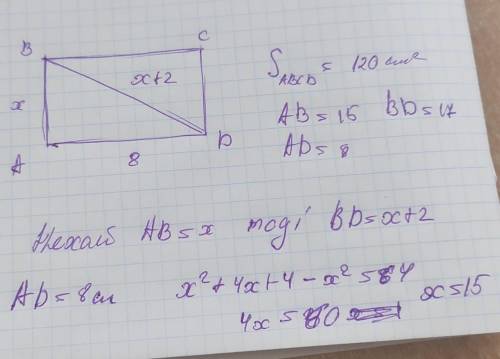 B
C
x
x+2
A
8
D
S_ABCD = 120 см²
AB = 15 BD = 17
AD = 8
Нехай AB = x тоді BD = x+2
AD = 8см
x² + 4x + 4 - x² = 64
4x = 60
x = 15